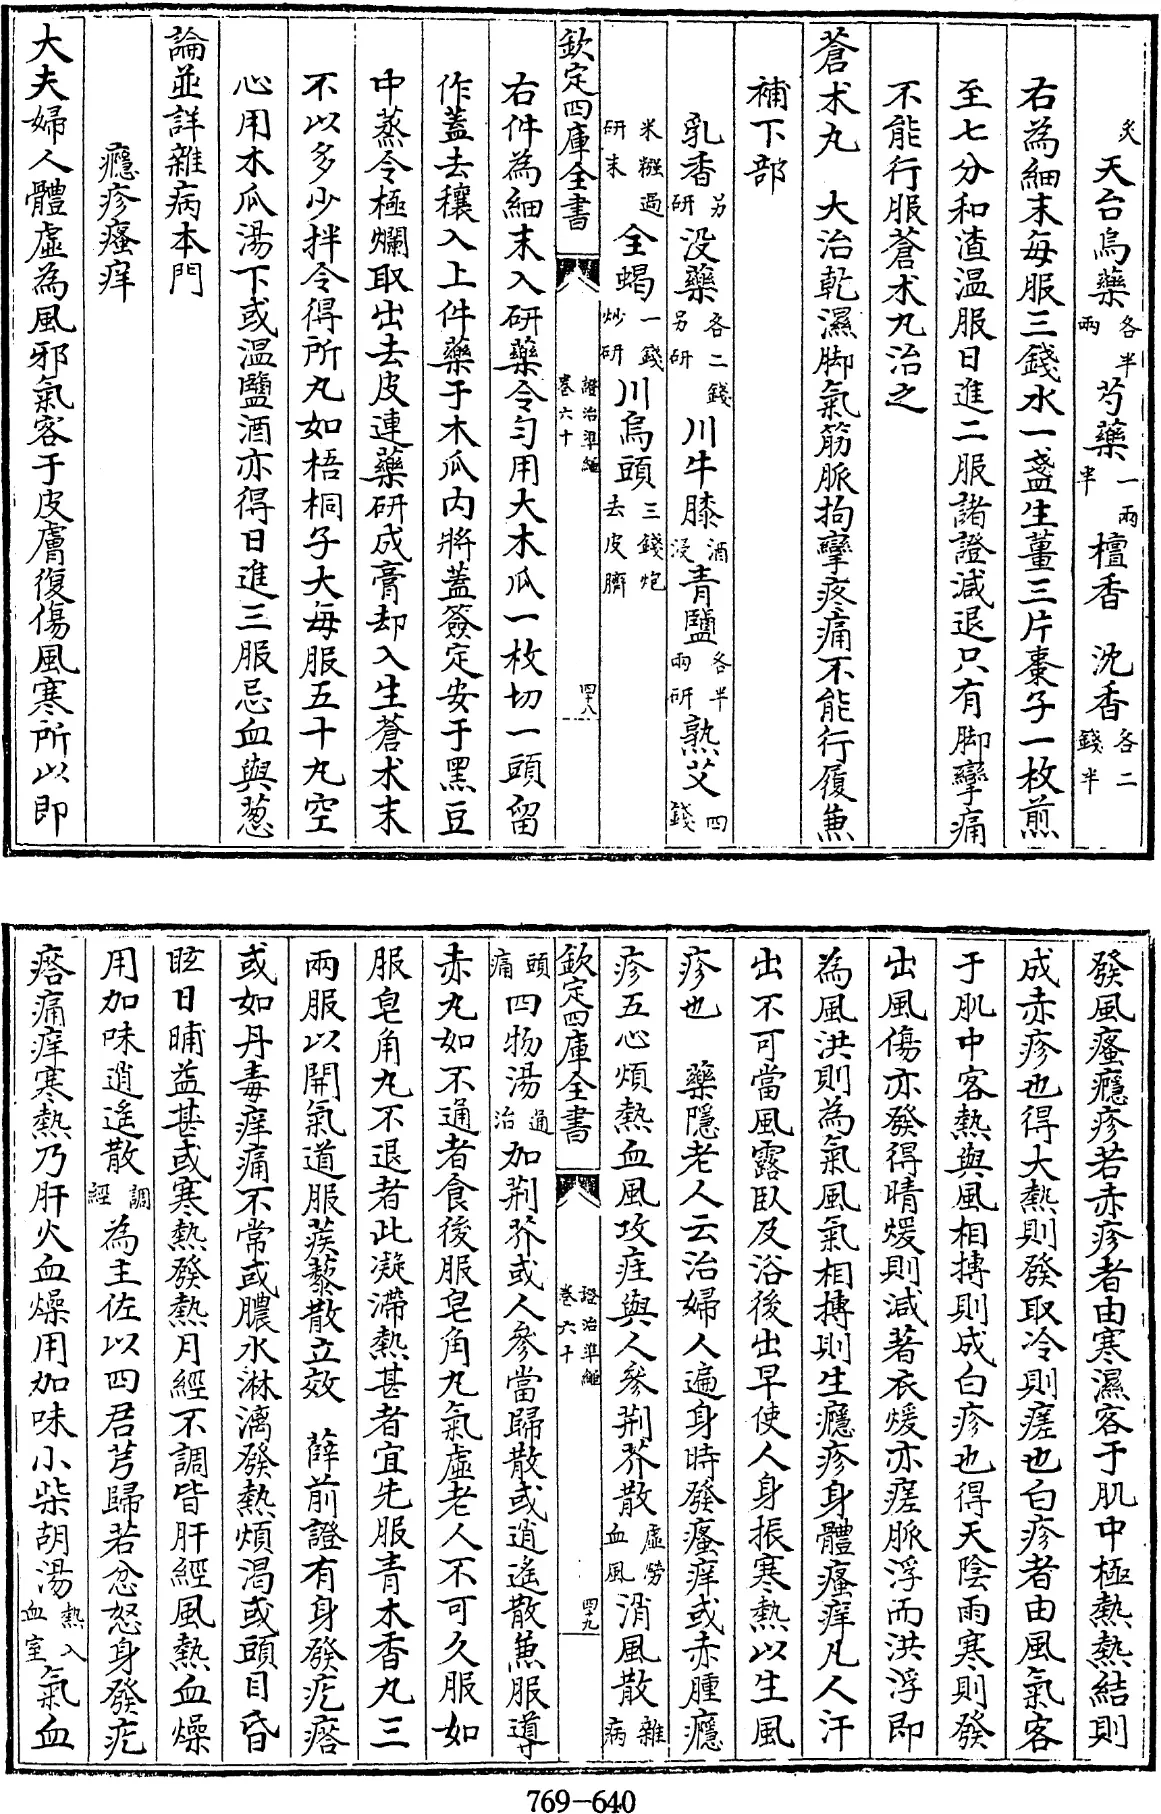 炙天台烏藥各半兩芍藥一兩半檀香 沈香各二錢半
右為細末每服三錢水一盞生薑三片棗子一枚煎
至七分和渣溫服日進二服諸證減退只有脚攣痛
不能行服蒼术丸治之
蒼术丸 大治乾濕脚氣筋脈拘攣疼痛不能行履兼
補下部
乳香另研沒藥各二錢另研川牛膝酒浸青鹽各半兩研熟艾四錢
米糨過研末全蝎一錢炒研川烏頭三錢炮去皮臍
欽定四庫全書 證治準繩卷六十 四十八
右件為細末入研藥令勻用大木瓜一枚切一頭留
作蓋去穰入上件藥于木瓜內將蓋簽定安于黑豆
中蒸令極爛取出去皮連藥研成膏却入生蒼术末
不以多少拌令得所丸如梧桐子大每服五十丸空
心用木瓜湯下或溫鹽酒亦得日進三服忌血與葱
論並詳雜病本門
癮疹瘙痒
大夫婦人體虛為風邪氣客于皮膚復傷風寒所以即
發風瘙癮疹若赤疹者由寒濕客于肌中極熱熱結則
成赤疹也得大熱則發取冷則瘥也白疹者由風氣客
于肌中客熱與風相摶則成白疹也得天陰雨寒則發
出風傷亦發得晴煖則減著衣煖亦瘥脈浮而洪浮即
為風洪則為氣風氣相摶則生癮疹身體瘙痒凡人汗
出不可當風露臥及浴後出早使人身振寒熱以生風
疹也 藥隱老人云治婦人遍身時發瘙痒或赤腫癮
疹五心煩熱血風攻疰與人參荆芥散虛勞血風消風散雜病
欽定四庫全書 證治準繩卷六十 四十九
頭痛四物湯通治加荆芥或人參當歸散或逍遙散兼服導
赤丸如不通者食後服皂角丸氣虛老人不可久服如
服皂角丸不退者此凝滯熱甚者宜先服青木香丸三
兩服以開氣道服蒺藜散立效 薛前證有身發疙瘩
或如丹毒痒痛不常或膿水淋漓發熱煩渴或頭目昏
眩日晡益甚或寒熱發熱月經不調皆肝經風熱血燥
用加味逍遙散調經為主佐以四君芎歸若忿怒身發疙
瘩痛痒寒熱乃肝火血燥用加味小柴胡湯熱入血室氣血
769-640